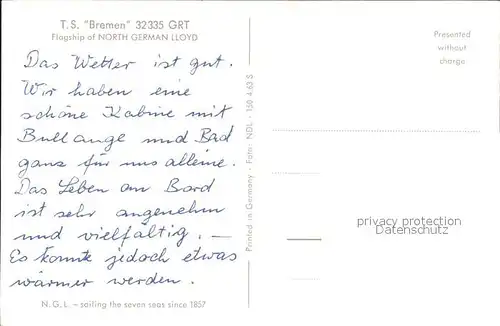 T. S. "Bremen" 32335 GRT
Flagship of NORTH GERMAN LLOYD
Das Wetter ist gut.
Wir haben eine
schöne Kabine mit
Bullauge und Bad
ganz für uns alleine.
Das Leben an Bord
ist sehr angenehm
und vielfältig. —
Es könnte jedoch etwas
wärmer werden.
N.G.L. – sailing the seven seas since 1857
Printed in Germany · Foto: NDL · 150 4.63 S
Presented
without
charge
privacy protection
Datenschutz